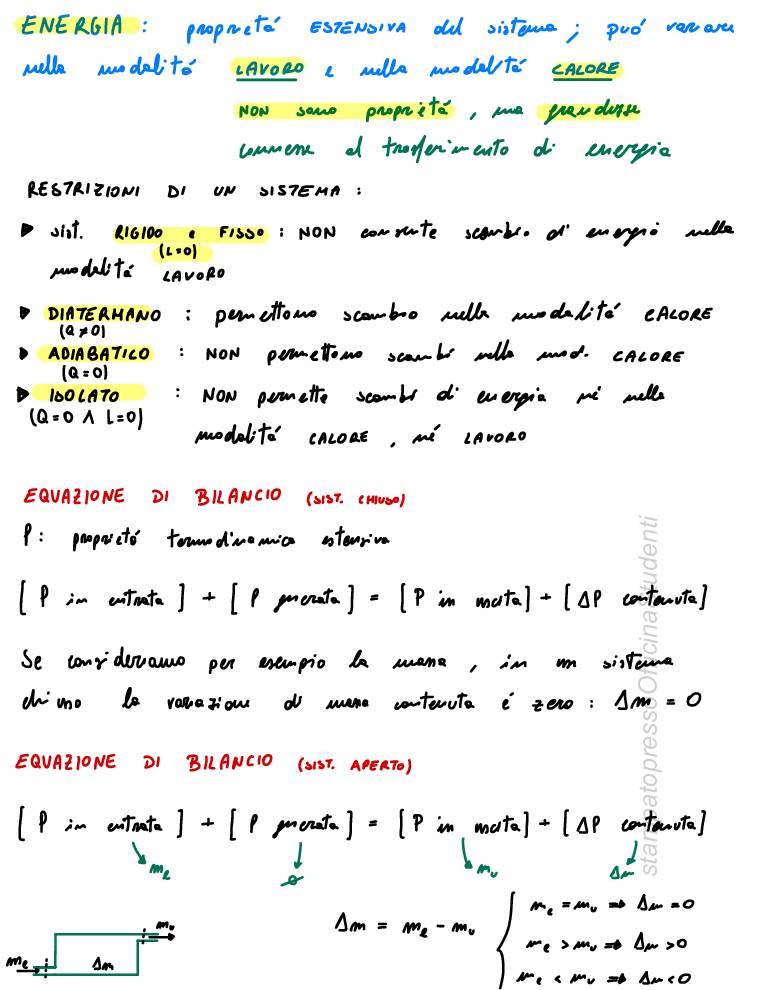 ENERGIA : proprietá ESTENSIVA del sistema ; puó variare
nella modalitá LAVORO e nella modalitá CALORE
NON sono proprietá , ma grandezze
connesse al trasferimento di energia
RESTRIZIONI DI UN SISTEMA :
▶ sist. RIGIDO e FISSO : NON consente scambio di energia nella
(L=0)
modalitá LAVORO
▶ DIATERMANO : permettono scambio nella modalitá CALORE
(Q ≠ 0)
▶ ADIABATICO : NON permettono scambi nella mod. CALORE
(Q = 0)
▶ ISOLATO : NON permette scambi di energia né nella
(Q = 0 ∧ L = 0)
modalitá CALORE , né LAVORO
EQUAZIONE DI BILANCIO (SIST. CHIUSO)
P : proprietá termodinamica estensiva
[ P in entrata ] + [ P generata ] = [ P in uscita ] + [ ΔP contenuta ]
Se consideriamo per esempio la massa , in un sistema
chiuso la variazione di massa contenuta é zero : Δm = 0
EQUAZIONE DI BILANCIO (SIST. APERTO)
[ P in entrata ] + [ P generata ] = [ P in uscita ] + [ ΔP contenuta ]
me ∅ mu Δm
Δm = me - mu
me = mu ⇒ Δm = 0
me > mu ⇒ Δm > 0
me < mu ⇒ Δm < 0
mu
me Δm
stampatopressoOfficinaStudenti